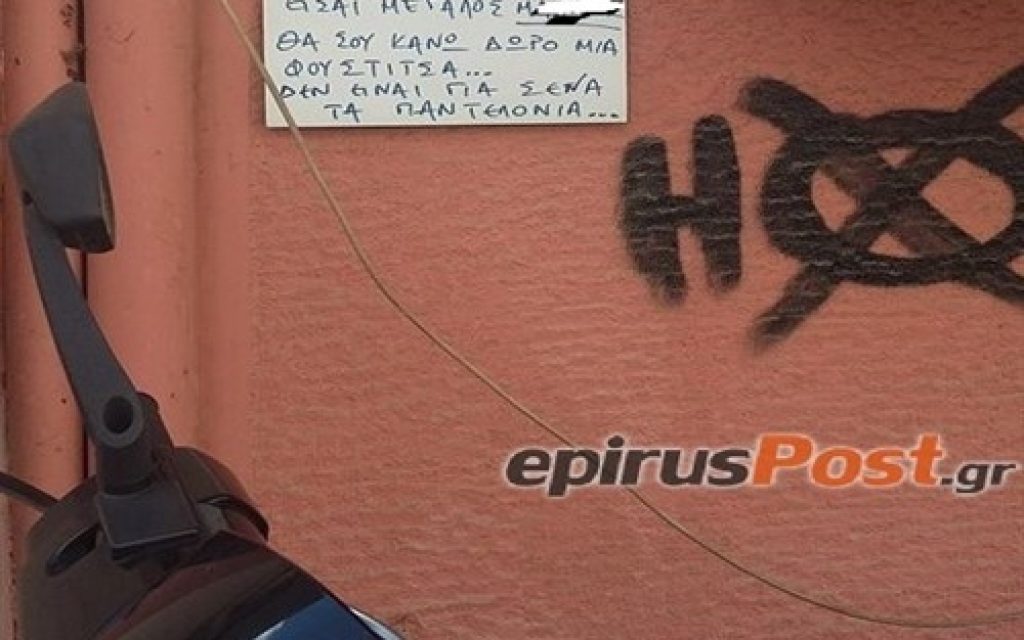 ΕΙΣΑΙ ΜΕΓΑΛΟΣ Μ
ΘΑ ΣΟΥ ΚΑΝΩ ΔΩΡΟ ΜΙΑ
ΦΟΥΣΤΙΤΣΑ...
ΔΕΝ ΕΙΝΑΙ ΓΙΑ ΣΕΝΑ
ΤΑ ΠΑΝΤΕΛΟΝΙΑ...
Η
epirusPost.gr